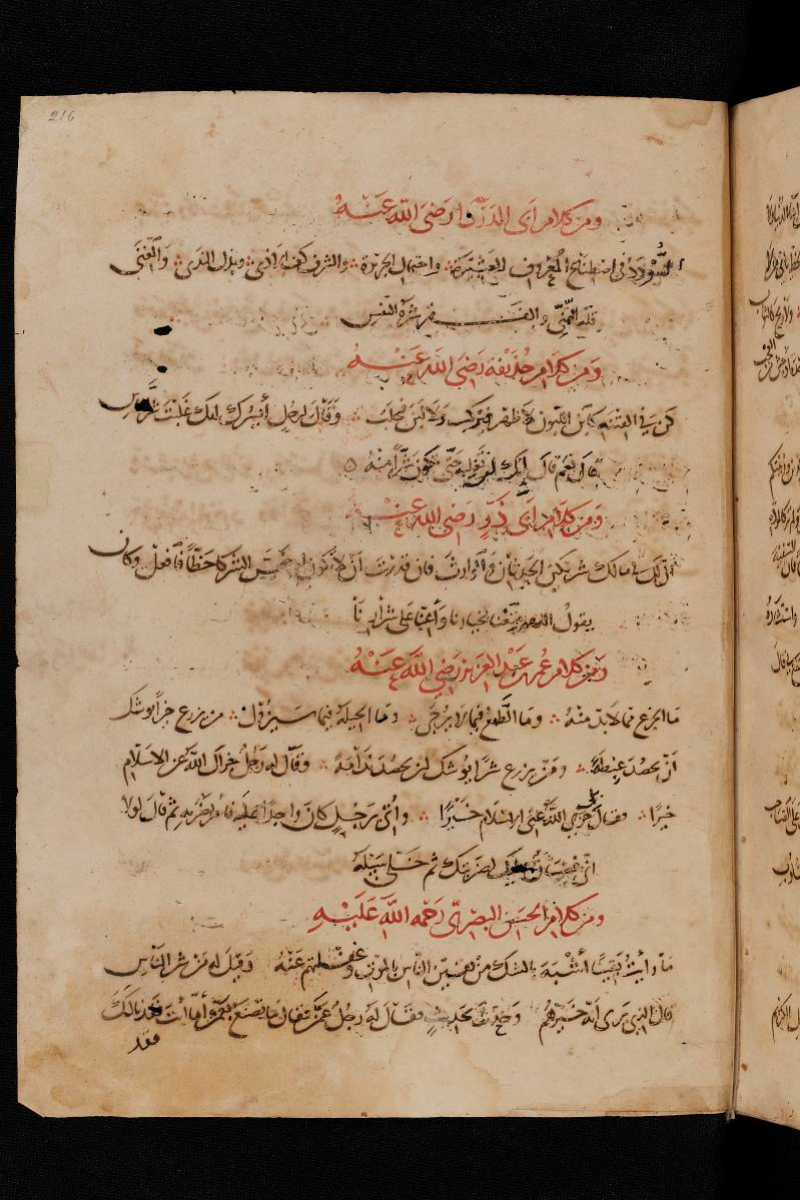 216
ومن كلام ابى الدرداء رضى الله عنه
السُّوددُ في اصطناع المعروف للعشيرة واحتمال الجريرة والشرف كف الاذى وبذل الندى والغنى
قلة التمنّي والفقر شره النفس
ومن كلام حذيفة رضى الله عنه
كن في الفتنه كابن اللبون لا ظهر فيركب ولا لبن فيحلب وقال لرجل أيسرك انك غلبت شر الناس
قال نعم قال انك لن تغلبه حتى تكون شرا منه
ومن كلام ابى ذر رضى الله عنه
ان لك في مالك شريكين الحدثان والوارث فان قدرت ان لا تكون اخس الشركا حظا فافعل وكان
يقول اللهم متعنا بخيارنا وأعنا على شرارنا
ومن كلام عمر بن عبد العزيز رضى الله عنه
ما الجزع مما لا بد منه وما الطمع فيما لا يرجى وما الحيلة فيما سيزول من يزرع خيرا يوشك
ان يحصد غبطة ومن يزرع شرا يوشك ان يحصد ندامة وقال له رجل جزاك الله عن الاسلام
خيرًا فقال بل جزى الله عنى الاسلام خيرًا وأتى برجل كان واجدا عليه فامر بضربه ثم قال لولا
انى غضبان عليك لضربتك ثم خلى سبيله
ومن كلام الحسن البصرى رحمه الله عليه
ما رأيت يقينًا أشبه بالشك من يقين الناس بالموت وغفلتهم عنه وقيل له من شر الناس
قال الذي يرى انه خيرهم وحدث بحديث فقال له رجل عمن فقال ما تصنع بعمن أما أنت فقد نالتك
فقد